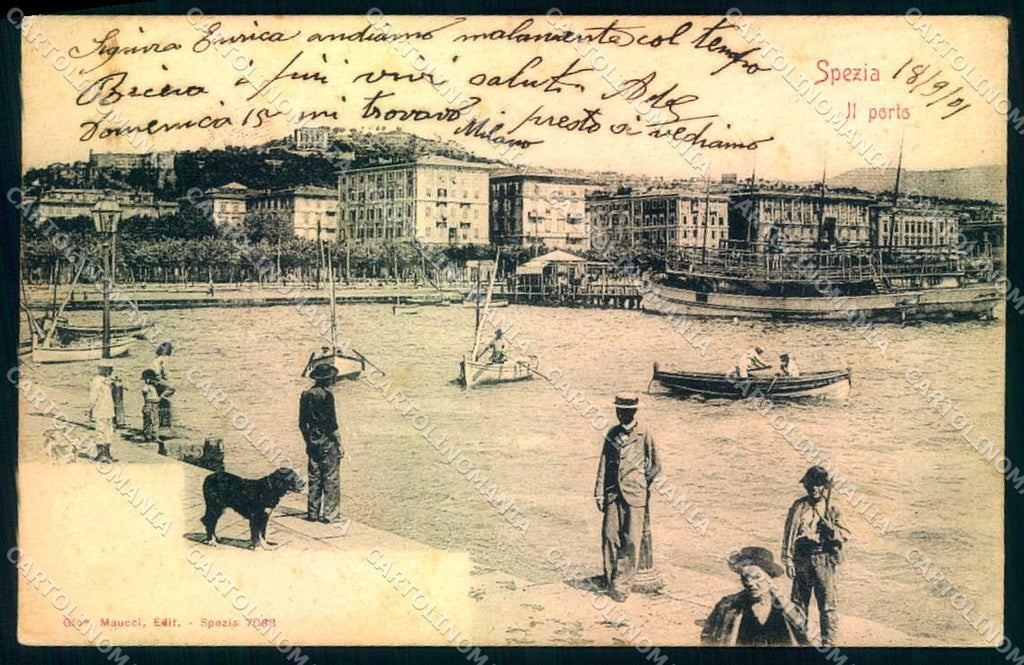 Signora Enrica andiamo malamente col tempo
Riceva i più vivi saluti. Ada
Domenica 15 mi trovavo presto si vediamo
Milano
Spezia 18/9/01
Il porto
Giov. Maucci, Edit. - Spezia 7068
CARTOLINOMANIA